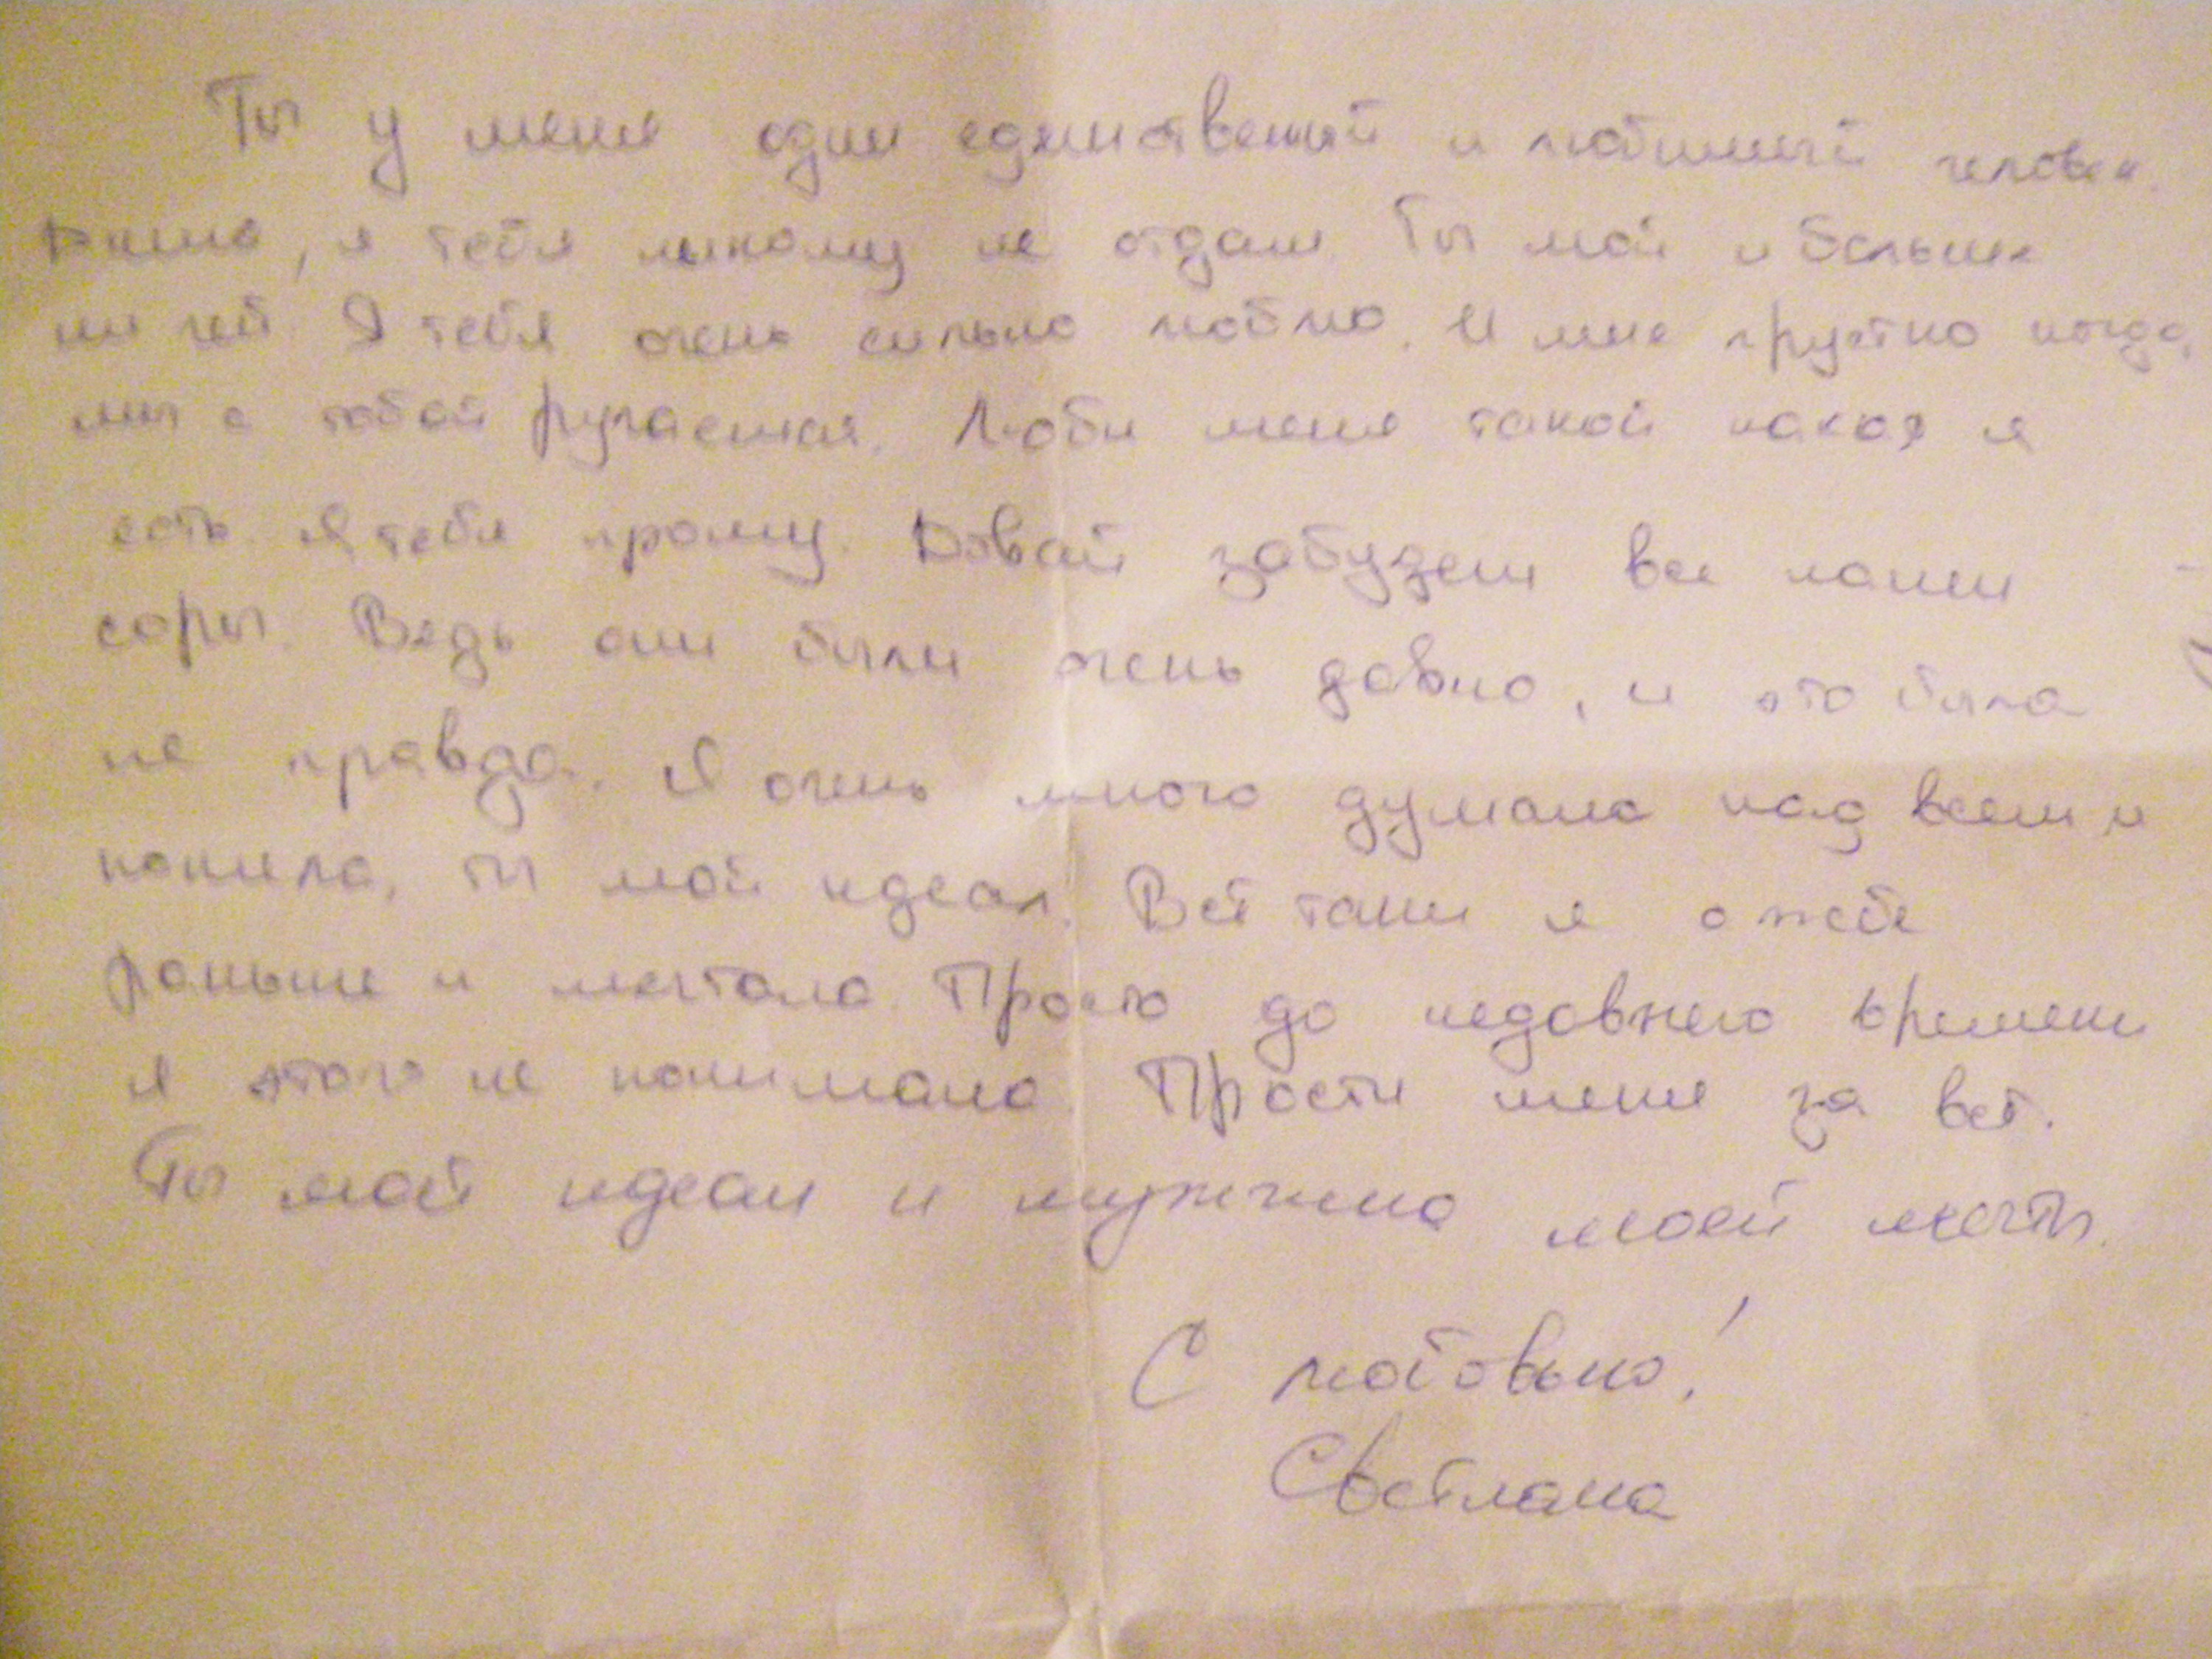 Ты у меня один единственый и любимый человек.
Дима, я тебя никому не отдам. Ты мой и больше
ни чей. Я тебя очень сильно люблю. И мне грустно когда
мы с тобой ругаемся. Люби меня такой какая я
есть. Я тебя прошу. Давай забудем все наши
соры. Ведь они были очень давно, и это было
не правда. Я очень много думала над всем и
поняла, ты мой идеал. Всё таки я о тебе
раньше и мечтала. Просто до недавнего времени
я этого не понимала. Прости меня за всё.
Ты мой идеал и мужчина моей мечты.
С любовью!
Светлана